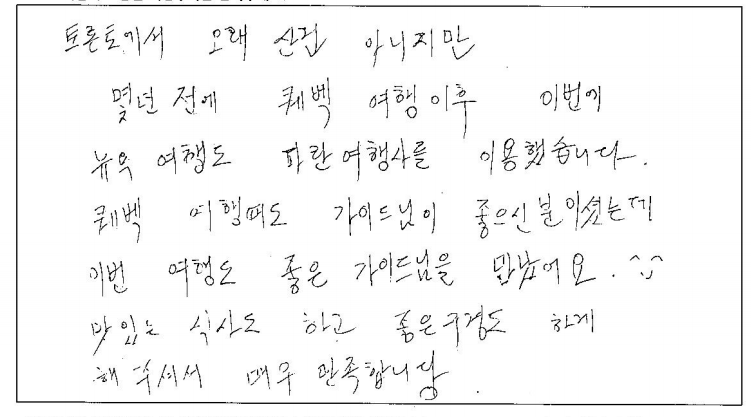 토론토에서 오래 산건 아니지만
몇년 전에 퀘벡 여행 이후 이번에
뉴욕 여행도 파란여행사를 이용했습니다.
퀘벡 여행때도 가이드님이 좋으신 분이셨는데
이번 여행도 좋은 가이드님을 만났어요. ^^
맛있는 식사도 하고 좋은구경도 하게
해 주셔서 매우 만족합니당.